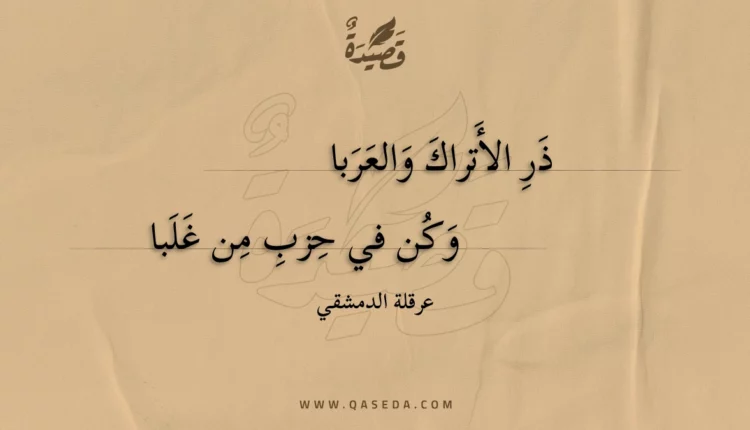 قَصِيدَةٌ
ذَرِ الأَتراكَ وَالعَرَبا
وَكُن في حِزبِ مِن غَلَبا
عرقلة الدمشقي
WWW.QASEDA.COM